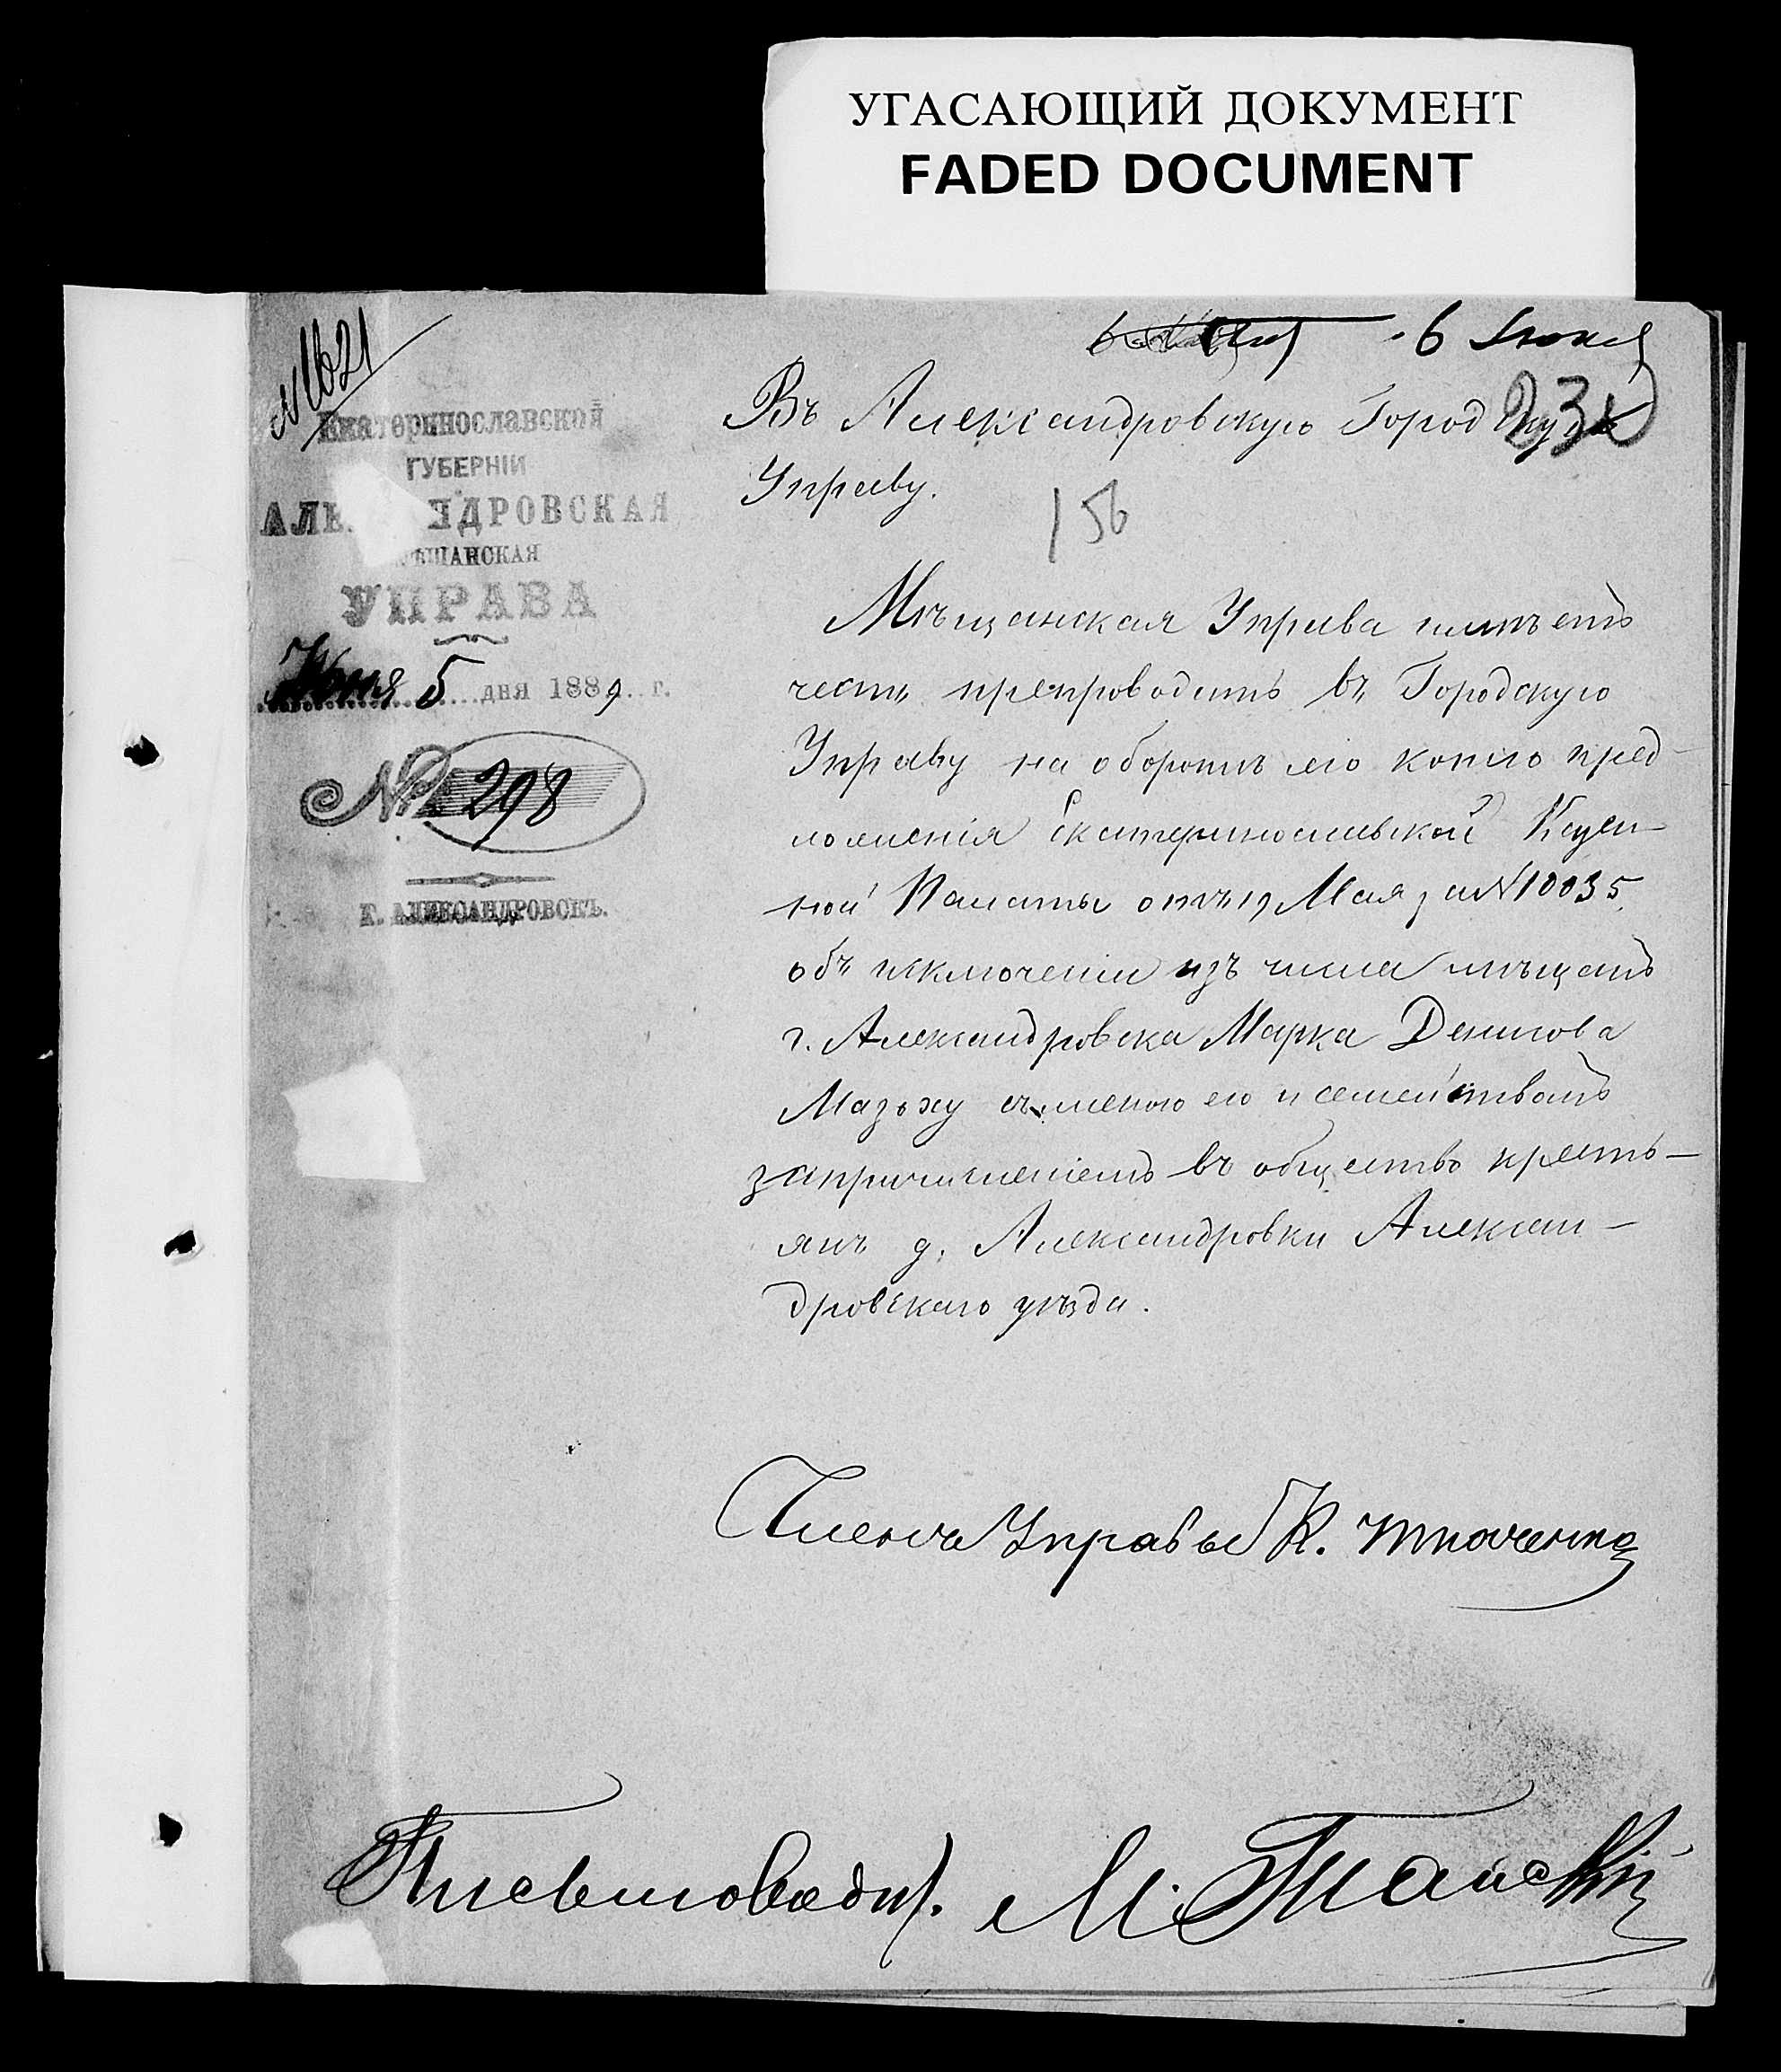 УГАСАЮЩИЙ ДОКУМЕНТ
FADED DOCUMENT
N1621
6 Июня
232
Екатеринославской
ГУБЕРНІИ
АЛЕ НДРОВСКАЯ
ѢЩАНСКАЯ
УПРАВА
Июня 5 дня 1889 г.
№ 298
Г. АЛЕКСАНДРОВСКЪ.
Въ Александровскую Городскую
Управу.
156
Мѣщанская Управа имѣетъ
честь препроводить въ Городскую
Управу на оборотѣ его копію пред
ложенія Екатеринославской Казен-
ной Палаты отъ 19 Мая за N 10035
объ исключеніи изъ числа мѣщанъ
г. Александровска Марка Денисова
съ женою его и семействомъ
запричисленіемъ въ общество кресть-
янъ д. Александровки Алексан-
дровскаго уѣзда.
Членъ Управы К. Ткаченко
Письмовод. М.